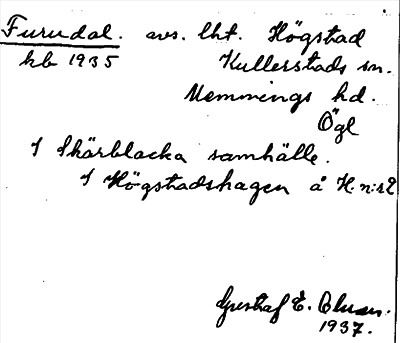 Furudal. avs. lht. Högstad
kb 1935 Kullerstads sn.
Memmings hd.
Ögl
I Skärblacka samhälle.
I Högstadshagen å H. n:s 2
Gustaf E.
1937.